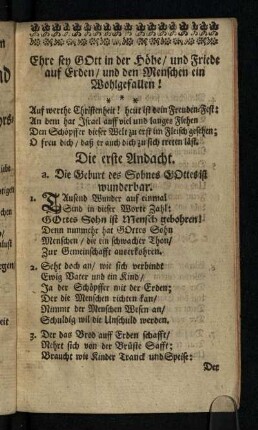 Ehre sey GOtt in der Höhe/ und Friede
auf Erden/ und den Menschen ein
Wohlgefallen!
* * *
Auf werthe Christenheit! heut ist dein Freuden-Fest:
An dem hat Israel auff viel und langes Flehen
Den Schöpffer dieser Welt zu erst im Fleisch gesehen;
O freu dich/ daß er auch dich zu sich treten läst.
Die erste Andacht.
a. Die Geburt des Sohnes GOttes ist
wunderbar.
1. Tausend Wunder auf einmal
Sind in dieser Worte Zahl:
GOttes Sohn ist Mensch gebohren!
Denn nunmehr hat GOttes Sohn
Menschen/ die ein schwacher Thon/
Zur Gemeinschafft auserkohren.
2. Seht doch an/ wie sich verbindt
Ewig Vater und ein Kind/
Ja der Schöpffer mit der Erden;
Der die Menschen richten kan/
Nimmt der Menschen Wesen an/
Schuldig wil die Unschuld werden.
3. Der das Brod auff Erden schafft/
Nehrt sich von der Brüste Safft:
Braucht wie Kinder Tranck und Speise:
Der